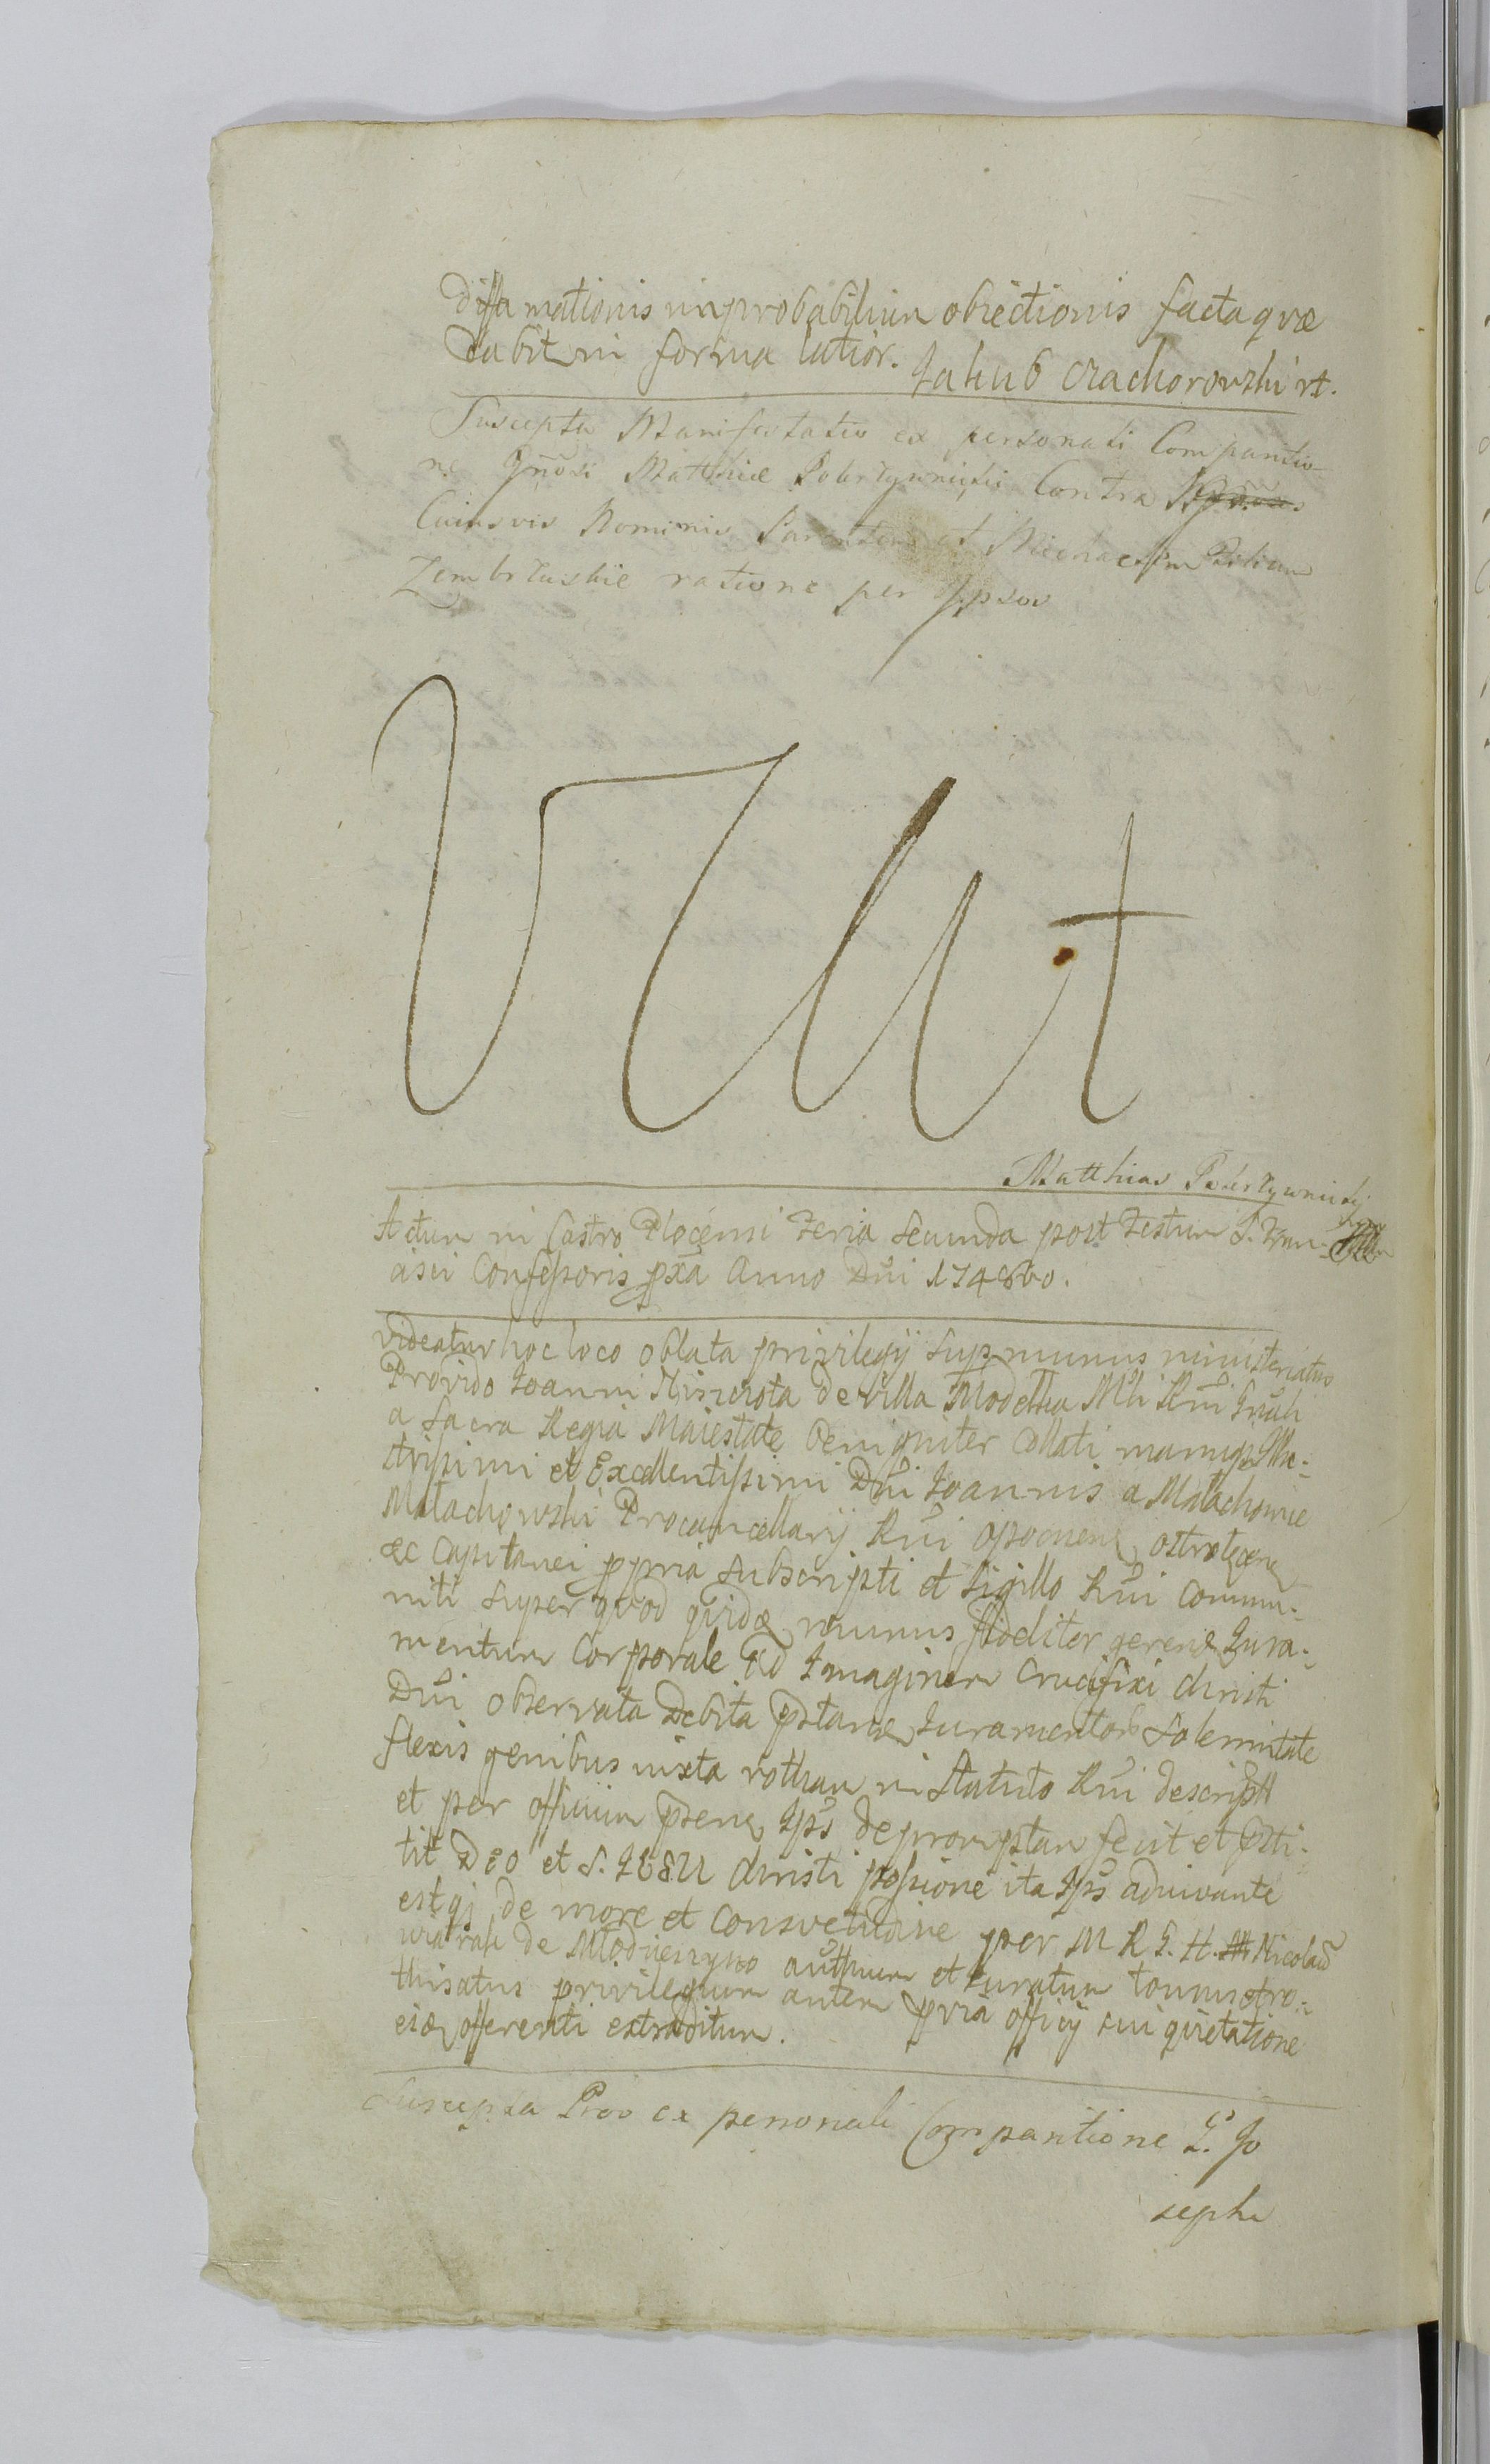 diffamationis improbabilium obiectionis facta quæ
dabit in forma latior. Jakub Czachorowski rt.
Suscepta Manifestatio ex personali Comparitio-
ne Gnosi Matthiæ Contra
Cuiusvis Nominis Parentem et Michaelem Filium
Zembrzuskie ratione per Ipsos
Ut
Matthias
Actum in Castro Plocensi Feria Secunda post Festum S. Fran-
cisci Confessoris pxa Anno Dni 1748vo.
videatur hoc loco oblata privilegij sup munus ministeriatus
Provido Joanni de villa Modelka Mli Rni Gnali
a Sacra Regia Maiestate benigniter Collati manuq Illu-
strissimi et Excellentissimi Dni Joannis a Małachowice
Małachowski Procancellarij Rni opocnen ostrołęcen
&c Capitanei ppria subscripti et Sigillo Rni commu-
niti super quod quidē munus fideliter gerend Jura-
mentum Corporale ad Imaginem Crucifixi Christi
Dni observata Debita pstand Juramentor Solemnitate
flexis genibus iuxta rotham in Statuto Rni descript
et per officium psens Ips depromptam fecit et psti-
tit Deo et S. IESU Christi passione ita Ips adiuvante
estqj de more et Consvetudine per M R G. H. Nicolaū
de authum et Juratum
privilegium autem pvia officij sui quietatione
eidē offerenti extraditum.
Suscepta Pro ex personali Comparitione G. Jo
sephi